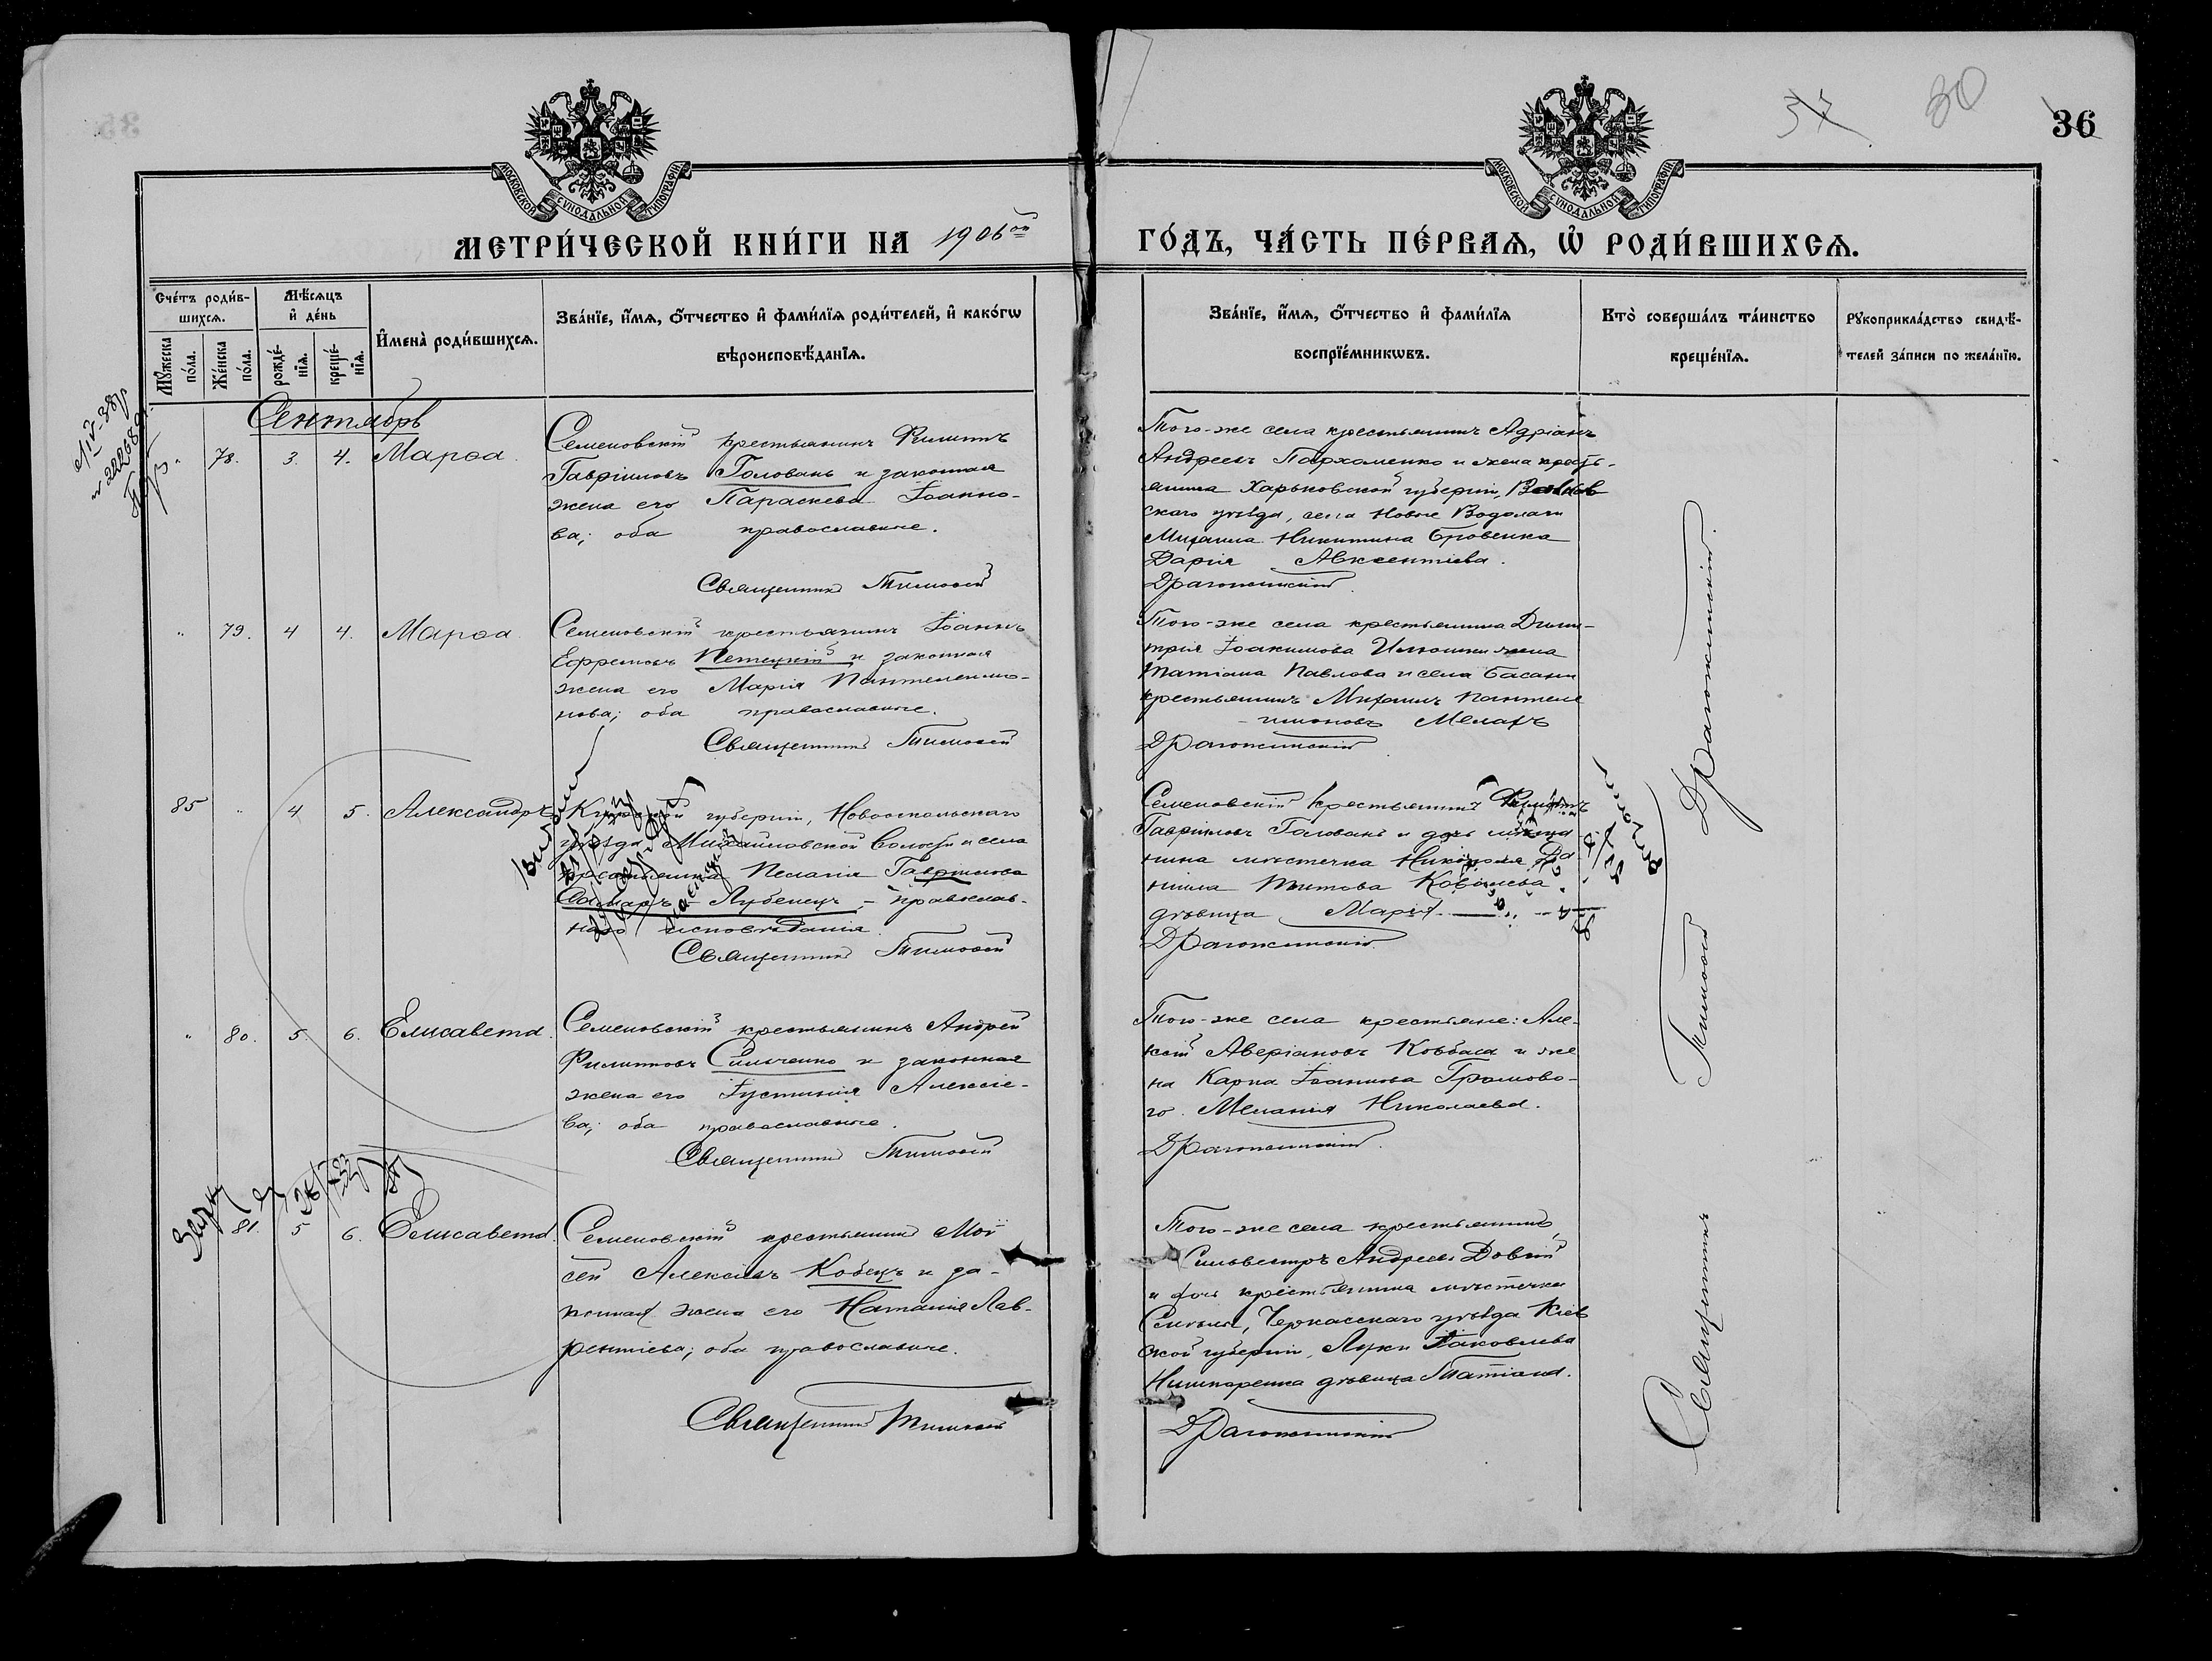 36
30
37
МОСКОВСКОЙ СУНОДАЛЬНОЙ ТИПОГРАФІИ
МОСКОВСКОЙ СУНОДАЛЬНОЙ ТИПОГРАФІИ
МЕТРИ́ЧЕСКОЙ КНИ́ГИ НА 1906ой
ГО́ДЪ, ЧА́СТЬ ПЕ́РВАѦ, Ѡ҆ РОДИ́ВШИХСѦ.
Сче́тъ роди́в-
шихсѧ.
Мѣ́сѧцъ
и҆ де́нь
Мꙋ́жеска по́ла.
Же́нска по́ла.
рожде́-
нїѧ.
креще́-
нїѧ.
И҆мена̀ роди́вшихсѧ.
Зва́нїе, и҆́мѧ, ѻ҆́тчество и҆ фами́лїѧ роди́телей, и҆ како́гѡ
вѣроисповѣ́данїѧ.
Зва́нїе, и҆́мѧ, ѻ҆́тчество и҆ фами́лїѧ
воспрїе́мникѡвъ.
Кто̀ соверша́лъ та́инство
креще́нїѧ.
Рꙋкоприкла́дство свидѣ́-
телей за́писи по жела́нїю.
Сентябрь
" 78. 3. 4. Марѳа
Семеновскій крестьянинъ Филиппъ
Гавріиловъ Головань и законная
жена его Параскева Іоанно-
ва; оба православные.
Священникъ Тимоѳей
Того-же села крестьянинъ Адріанъ
Андреевъ Пархоменко и жена кресть-
янина Харьковской губерніи, Валков
скаго уѣзда, села Новые Водолаги
Михаила Никитина Бровенка
Дарія Авксентіева.
Драгожинскій
" 79. 4 4. Марѳа
Семеновскій крестьянинъ Іоаннъ
Ефремовъ Немецкій и законная
жена его Марія Пантелеимо-
нова; оба православные.
Священникъ Тимоѳей
Того-же села крестьянина Дими-
трія Іоакимова жена
Татіана Павлова и села Басани
крестьянинъ Михаилъ Пантеле
-имоновъ
Драгожинскій
85 " 4 5. Александръ
Курской губерніи, Новооскольскаго
уѣзда Михайловской волости и села
крестьянка Пелагія Гавріилова
Лубенецъ, - православ-
наго исповѣданія.
Священникъ Тимоѳей
Семеновскій крестьянинъ Филиппъ
Гавріиловъ Головань и дочь мѣща
нина мѣстечка Никополя Да-
ніила Титова Ковалева
дѣвица Марія
Драгожинскій
" 80. 5. 6. Елисавета.
Семеновскій крестьянинъ Андрей
Филипповъ Сильченко и законная
жена его Іустинія Алексіе-
ва; оба православные.
Священникъ Тимоѳей
Того-же села крестьяне: Але-
ксій Аверіановъ Ковбаса и же
на Карпа Іоаннова Громово-
го Меланія Николаева.
Драгожинскій
81. 5 6. Елисавета.
Семеновскій крестьянинъ Мой
сей Алексіевъ Кобецъ и за-
конная жена его Наталія Лав-
рентіева; оба православные.
Священникъ Тимоѳей
Того-же села крестьянинъ
Сильвестръ Андреевъ Довгій
и дочь крестьянина мѣстечка
Смѣлы, Черкасскаго уѣзда Кіев
ской губерніи, Луки Іаковлева
дѣвица Татіана.
Драгожинскій
Священникъ Тимоѳей Драгожинскій.